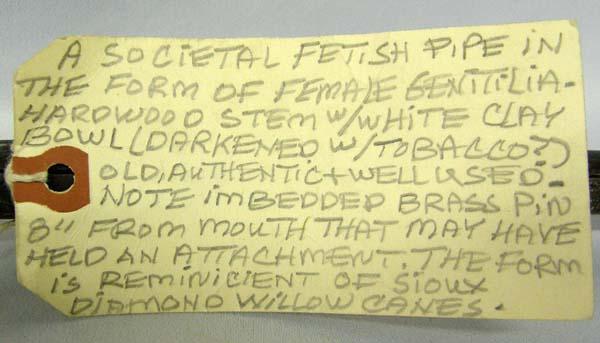 A SOCIETAL FETISH PIPE IN
THE FORM OF FEMALE GENITILIA-
HARDWOOD STEM W/WHITE CLAY
BOWL (DARKENED W/TOBACCO?)
OLD, AUTHENTIC + WELL USED-
NOTE IMBEDDED BRASS PIN
8" FROM MOUTH THAT MAY HAVE
HELD AN ATTACHMENT. THE FORM
IS REMINICIENT OF SIOUX
DIAMOND WILLOW CANES.